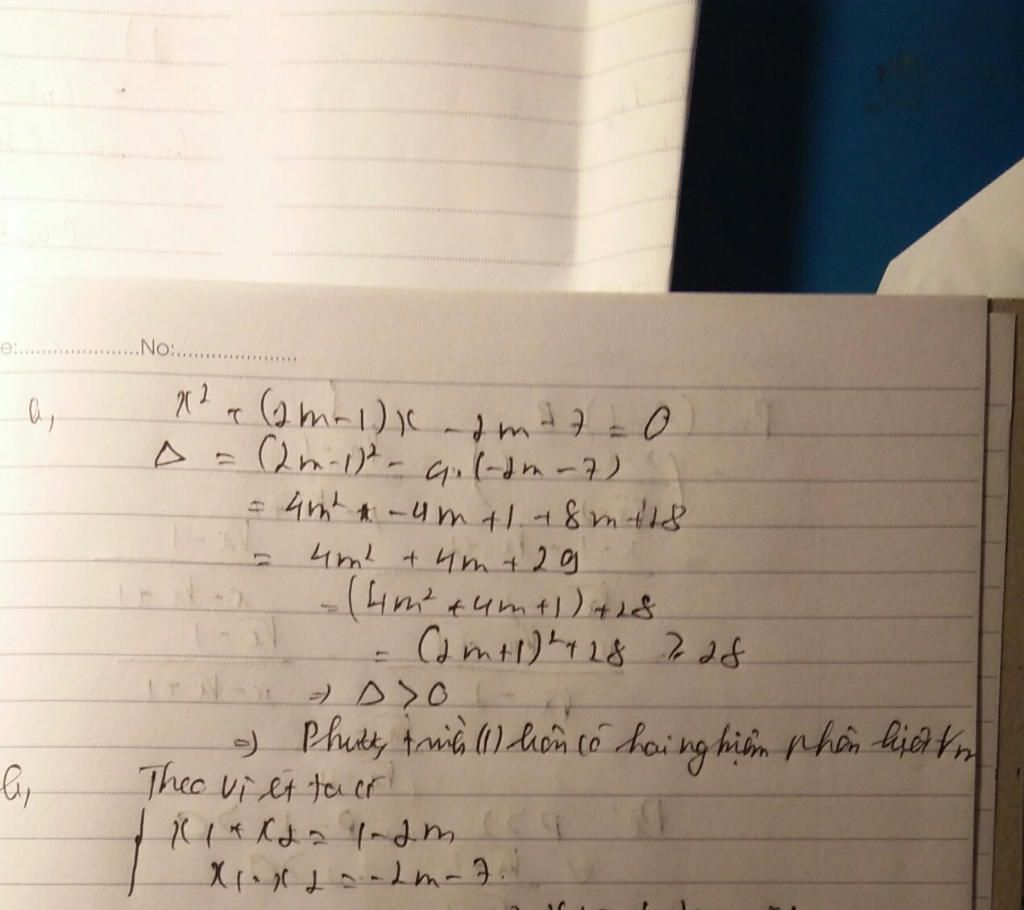 e:......................No:......................
a, x² + (2m-1)x - 2m - 7 = 0
Δ = (2m-1)² - 4.(-2m-7)
= 4m² - 4m + 1 + 8m + 28
= 4m² + 4m + 29
= (4m² + 4m + 1) + 28
= (2m+1)² + 28 ≥ 28
⇒ Δ > 0
⇒ Phương trình (1) luôn có hai nghiệm phân biệt ∀m
b, Theo vi ét ta có
x1 + x2 = 1 - 2m
x1 . x2 = -2m - 7.